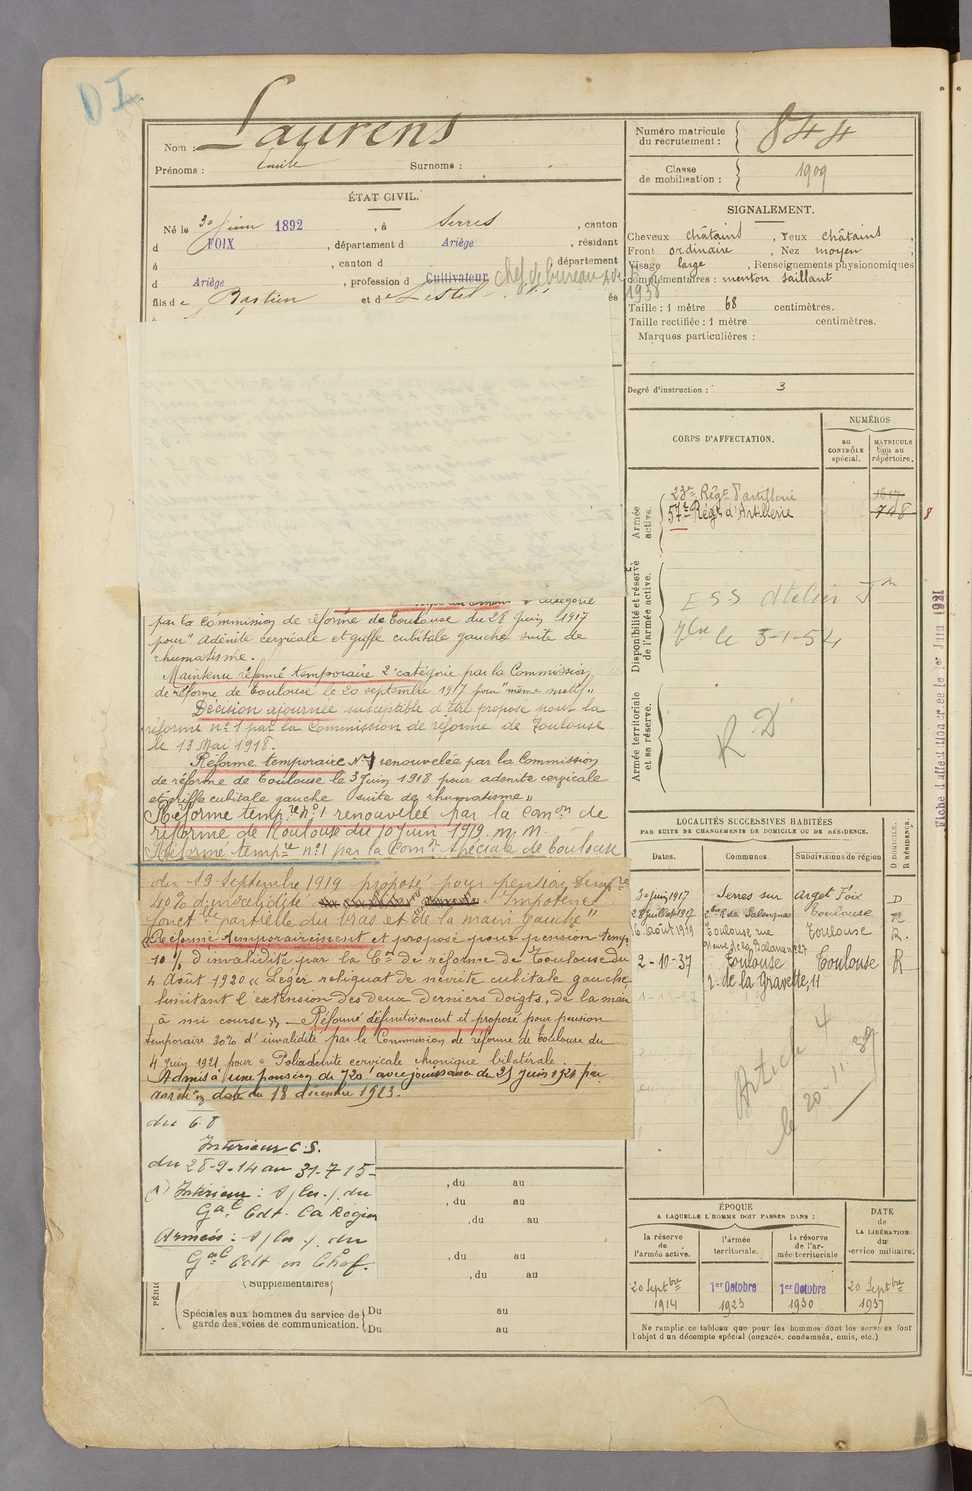 D I
Nom : Laurens
Prénoms : Emile Surnoms :
ÉTAT CIVIL.
Né le 30 juin 1892, à Serres, canton
d FOIX, département d Ariège, résidant
à , canton d , département
d Ariège, profession d Cultivateur chef de bureau
fils de Bastien et de
1938
Numéro matricule du recrutement : 844
Classe de mobilisation : 1909
SIGNALEMENT.
Cheveux châtains, Yeux châtains,
Front ordinaire, Nez moyen,
Visage large, Renseignements physionomiques
complémentaires : menton saillant
Taille : 1 mètre 68 centimètres.
Taille rectifiée : 1 mètre centimètres.
Marques particulières :
Degré d'instruction : 3
CORPS D'AFFECTATION.
NUMÉROS
au CONTRÔLE spécial.
MATRICULE
répertoire.
Armée active.
23e Régt d'artillerie
57e Régt d'Artillerie
748
8
Disponibilité et réserve de l'armée active.
ESS Atelier
le 5-1-54
Armée territoriale et sa réserve.
R D
Fiche d'affectation créée le 1er Juin 1921
catégorie
par la Commission de réforme de Toulouse du 28 juin 1917
pour "adénite cervicale et griffe cubitale gauche suite de
rhumatisme.
Maintenu réformé temporaire 2e catégorie par la Commission
de réforme de Toulouse le 20 septembre 1917 pour "même motif"
Décision ajournée susceptible d'être proposé pour la
réforme n°1 par la Commission de réforme de Toulouse
le 13 Mai 1918.
Réforme temporaire N°1 renouvelée par la Commission
de réforme de Toulouse le 3 Juin 1918 pour adénite cervicale
et griffe cubitale gauche suite de rhumatisme"
Réforme tempre n°1 renouvelée par la Comon de
réforme de Toulouse du 10 juin 1919. m. m.
Réformé tempre n°1 par la Comon spéciale de Toulouse
du 19 Septembre 1919 proposé pour pension tempre
40% d'invalidité Impotence
fonctlle partielle du bras et de la main gauche"
Réformé temporairement et proposé pour pension temp.
10% d'invalidité par la Con de réforme de Toulouse du
4 Août 1920 "Léger reliquat de névrite cubitale gauche
limitant l'extension des deux derniers doigts, de la main
à mi course". Réformé définitivement et proposé pour pension
temporaire 30% d'invalidité par la Commission de réforme de Toulouse du
4 Juin 1921 pour "Poliadénite cervicale chronique bilatérale.
Admis à une pension de 720f avec jouissance du 25 Juin 1920 par
daté du 18 décembre 1923.
du C. R
Intérieur C. S.
du 28-9-14 au 31-7-15
(1) Intérieur : du
Gal Cdt. la Région
Armées : du
Gal Cdt en Chef.
, du au
, du au
, du au
, du au
, du au
Supplémentaires
Spéciales aux hommes du service de garde des voies de communication. Du au
Du au
LOCALITÉS SUCCESSIVES HABITÉES
PAR SUITE DE CHANGEMENTS DE DOMICILE OU DE RÉSIDENCE.
Dates. Communes. Subdivisions de région D DOMICILE. R RÉSIDENCE.
30 juin 1917 Serres sur Arget Foix D
28 juillet 1917 Toulouse R
16 Août 1919 Toulouse rue Toulouse R.
2-10-37 Toulouse Toulouse R
r. de la Gravette, 11
Article 4
le 20-11-39
ÉPOQUE
A LAQUELLE L'HOMME DOIT PASSER DANS :
la réserve de l'armée active. l'armée territoriale. la réserve de l'armée territoriale
DATE de LA LIBÉRATION du service militaire.
20 Septbre 1914 1er Octobre 1923 1er Octobre 1930 20 Septbre 1937
Ne remplir ce tableau que pour les hommes dont les services font
l'objet d'un décompte spécial (engagés, condamnés, omis, etc.)